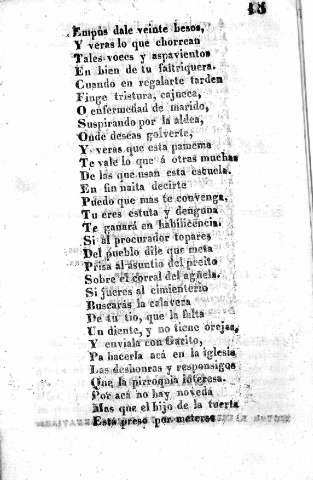 15
Empus dale veinte besos,
Y veras lo que chorrean
Tales voces y aspavientos
En bien de tu faltriquera.
Cuando en regalarte tarden
Finge tristura, cajueca,
O enfermedad de marido,
Suspirando por la aldea,
Onde deseas golverte,
Y veras que esta pamema
Te vale lo que á otras muchas
De las que usan esta escuela.
En fin naita decirte
Puedo que mas te convenga,
Tu eres estuta y denguna
Te ganará en habilicencia.
Si al procurador topares
Del pueblo dile que meta
Prisa al asuntio del preito
Sobre el corral del agüela.
Si jueres al cimienterio
Buscarás la calavera
De tu tio, que la falta
Un diente, y no tiene orejas,
Y enviala con Garito,
Pa hacerla acá en la iglesia
Las deshonras y responsigos
Que la pirroquia interesa.
Por acá no hay noveda
Mas que el hijo de la tuerta
Está preso por meterse